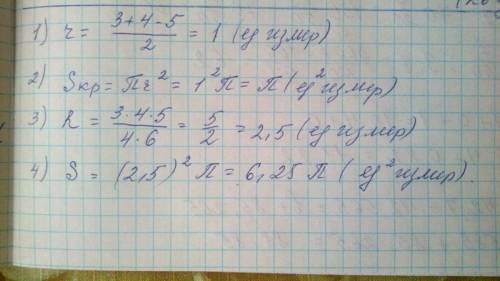 1) r = (3+4-5)/2 = 1 (ед измер)
2) Sкр = Пr² = 1²П = П (ед² измер)
3) R = (3·4·5)/(4·6) = 5/2 = 2,5 (ед измер)
4) S = (2,5)² П = 6,25 П (ед² измер).